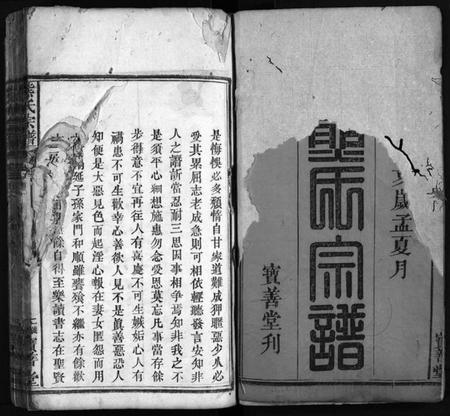 亥歲孟夏月
氏宗譜
寶善堂刊
寶善堂
是悔悞必多頹惰自甘家道難成狎暱惡少久必
受其累屈志老成急則可相依輕聽發言安知非
人之譖訴當忍耐三思因事相爭焉知非我之不
是須平心細想施惠勿念受恩莫忘凡事當存餘
步得意不宜再往人有喜慶不可生嫉妬心人有
禍患不可生歡幸心善欲人見不是眞善惡恐人
知便是大惡見色而起淫心報在妻女匿怨而用
延子孫家門和順雖饔飧不繼亦有餘歡
餘自得至樂讀書志在聖賢
氏宗譜
寶善堂